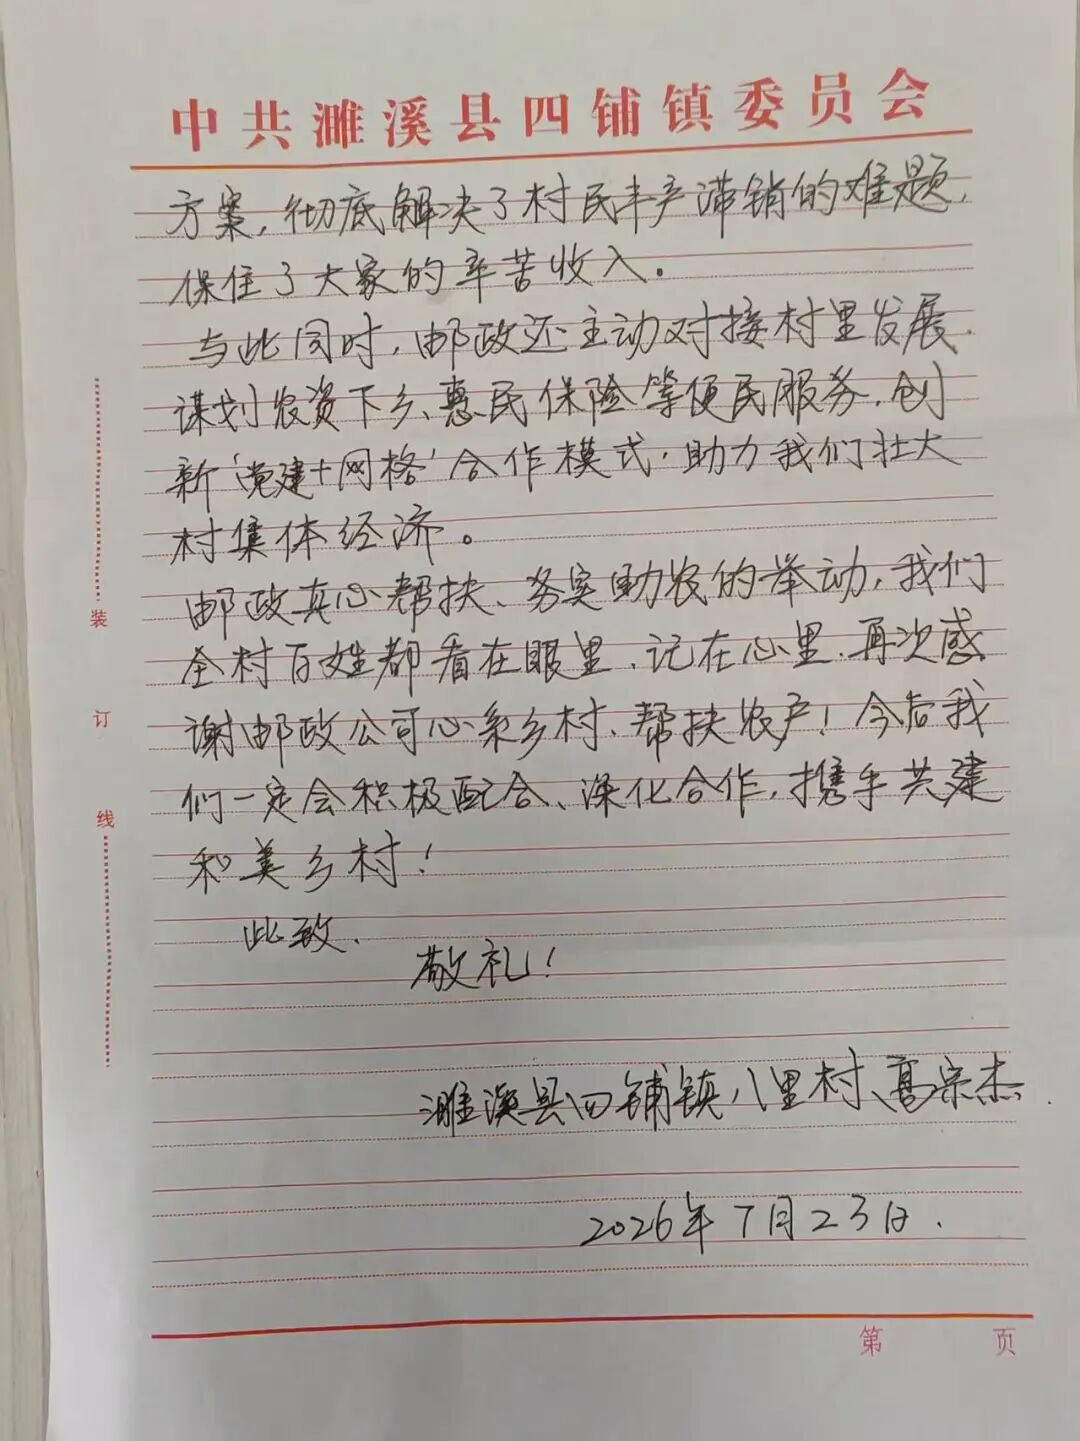 中共濉溪县四铺镇委员会
方案,彻底解决了村民丰产滞销的难题,
保住了大家的辛苦收入。
与此同时,邮政还主动对接村里发展,
谋划农资下乡、惠民保险等便民服务,创
新'党建+网格'合作模式,助力我们壮大
村集体经济。
邮政真心帮扶、务实助农的举动,我们
全村百姓都看在眼里、记在心里,再次感
谢邮政公司心系乡村、帮扶农产!今后我
们一定会积极配合、深化合作,携手共建
和美乡村!
此致、
敬礼!
濉溪县四铺镇八里村、高宗杰.
2026年7月23日.
装
订
线
第 页